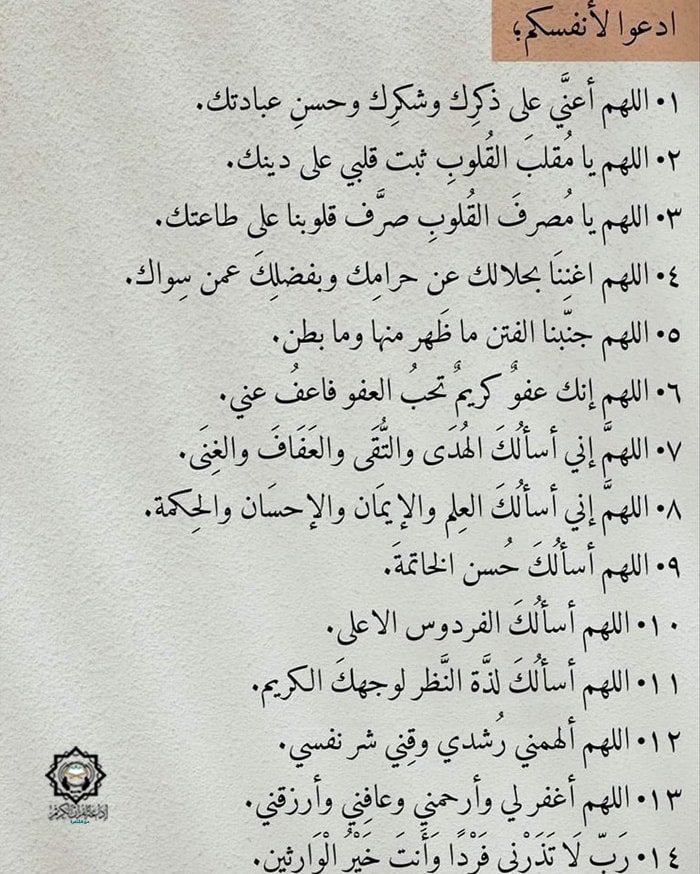 ادعوا لأنفسكم؛
١• اللهم أعنَّي على ذكرِك وشكرِك وحسنِ عبادتك.
٢• اللهم يا مُقلبَ القُلوبِ ثبت قلبي على دينك.
٣• اللهم يا مُصرفَ القُلوبِ صرَّف قلوبنا على طاعتك.
٤• اللهم اغنِنَا بحلالك عن حرامِك وبفضلِكَ عمن سِواك.
٥• اللهم جنّبنا الفتن ما ظَهر منها وما بطن.
٦• اللهم إنك عفوٌ كريمٌ تحبُ العفو فاعفُ عني.
٧• اللهمَّ إني أسألُكَ الهُدَى والتُّقَى والعَفَافَ والغِنَى.
٨• اللهمَّ إني أسألُكَ العِلم والإيمَان والإحسَان والحِكمة.
٩• اللهم أسألُكَ حُسن الخاتمةَ.
١٠• اللهم أسألُكَ الفردوس الاعلى.
١١• اللهم أسألُكَ لذَّة النَّظر لوجهكَ الكريم.
١٢• اللهم ألهمني رُشدي وقِني شر نفسي.
١٣• اللهم أغفر لي وأرحمني وعافِني وأرزقني.
١٤• رَبِّ لَا تَذَرْنِي فَرْدًا وَأَنتَ خَيْرُ الْوَارِثِين.
إذاعة القرآن الكريم